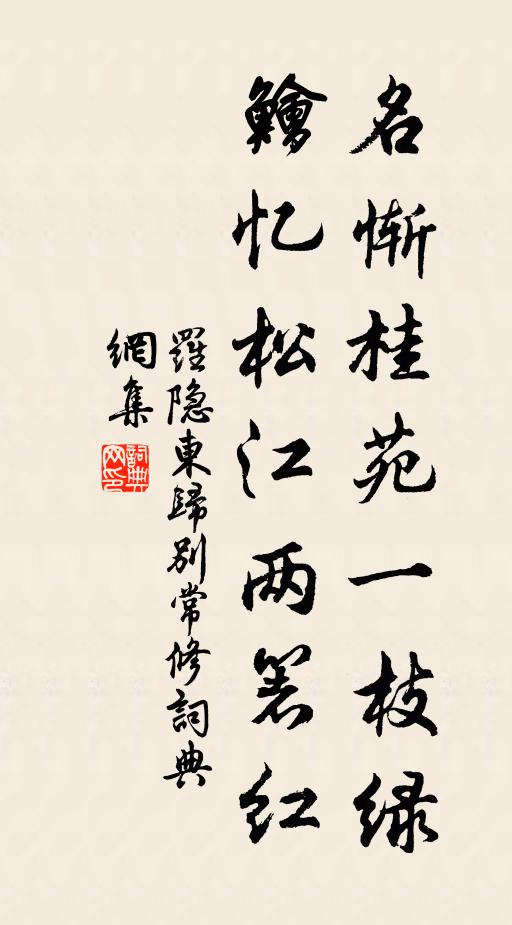 名惭桂苑一枝绿
鱠忆松江两箸红
羅隐東歸别常修詞典
網集
詞典
网印